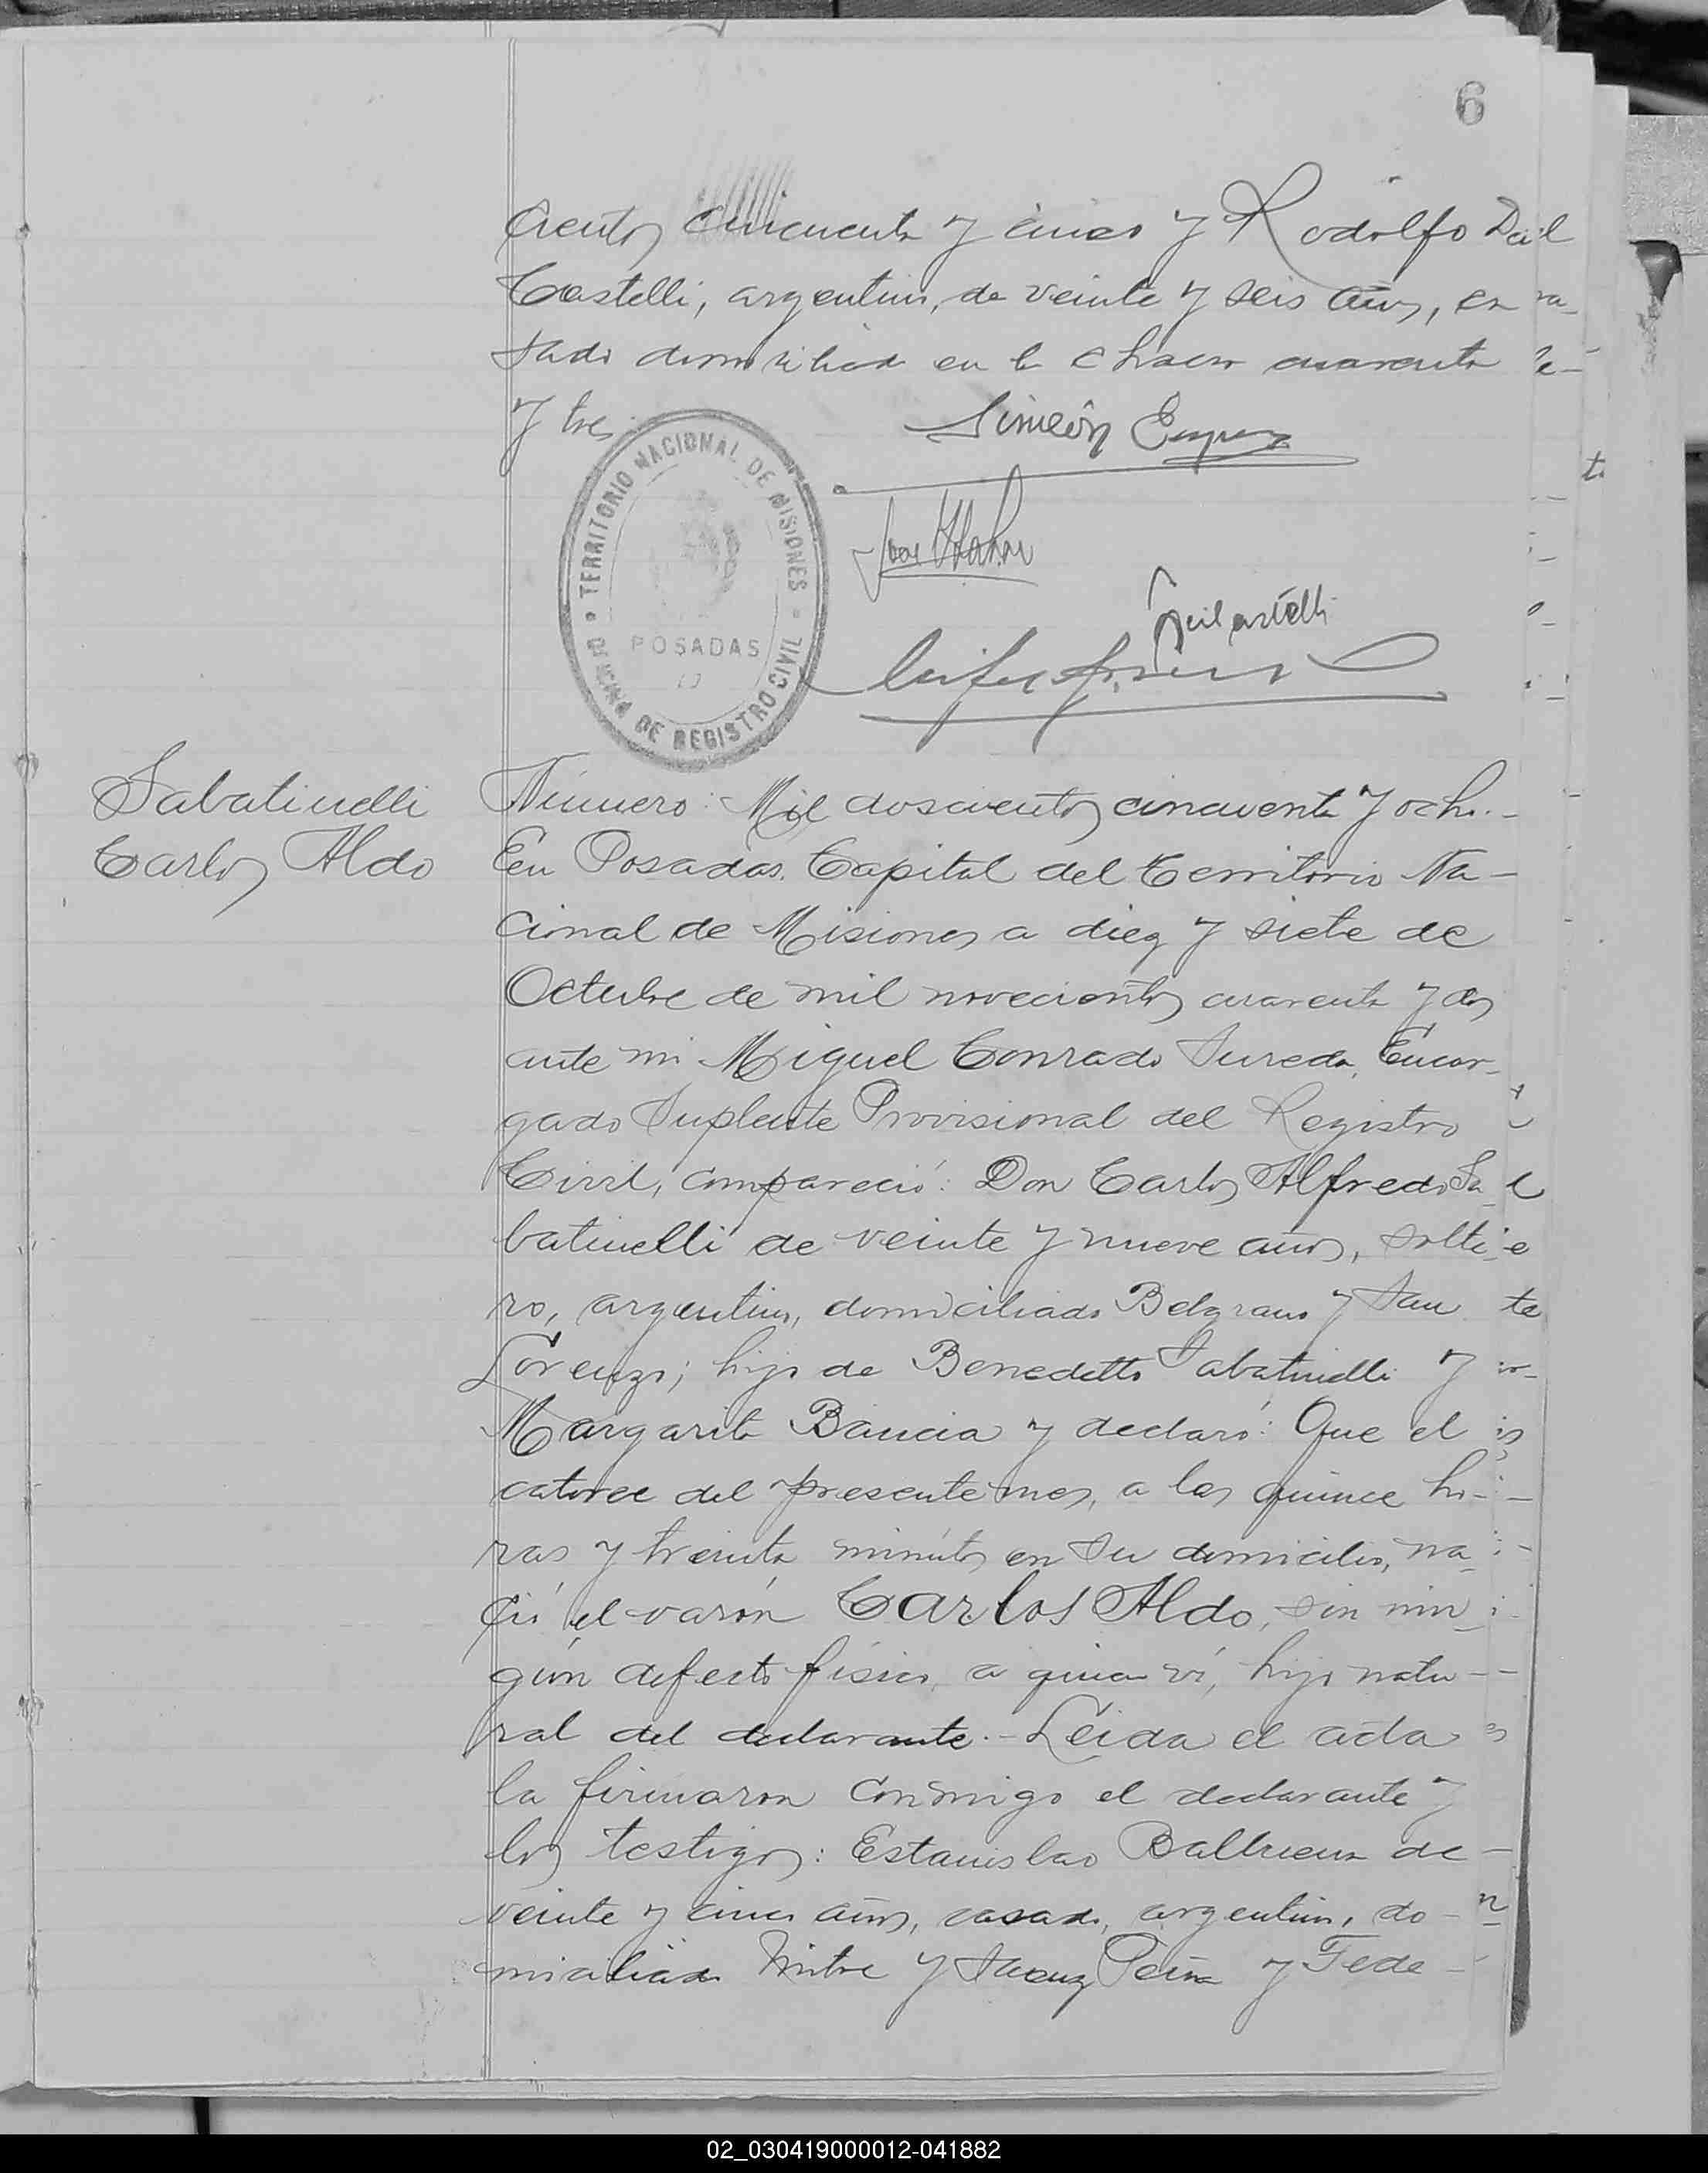 6
cientos cincuenta y cinco y Rodolfo Dal
Castelli, argentino, de veinte y seis años, ca
sado domiciliado en la chacra cuarenta
y tres
Simeón
TERRITORIO NACIONAL DE MISIONES
POSADAS
OFICINA DE REGISTRO CIVIL
Sabatinelli
Carlos Aldo
Número: Mil doscientos cincuenta y ocho.-
En Posadas, Capital del Territorio Na-
cional de Misiones a diez y siete de
Octubre de mil novecientos cuarenta y dos
ante mi Miguel Conrado Sureda, Encar-
gado Suplente Provisional del Registro
Civil, compareció: Don Carlos Alfredo Sa-
batinelli de veinte y nueve años, solte-
ro, argentino, domiciliado Belgrano y San
Lorenzo; hijo de Benedetto Sabatinelli y
Margarita Bancia y declaró: Que el
catorce del presente mes, a las quince ho-
ras y treinta minutos en su domicilio, na-
ció el varón Carlos Aldo, sin nin-
gún defecto físico, a quien ví, hijo natu-
ral del declarante.- Leida el acta
la firmaron conmigo el declarante y
los testigos: Estanislao de
veinte y cinco años, casado, argentino, do-
miciliado Mitre y Saenz Peña y Fede-
02_030419000012-041882